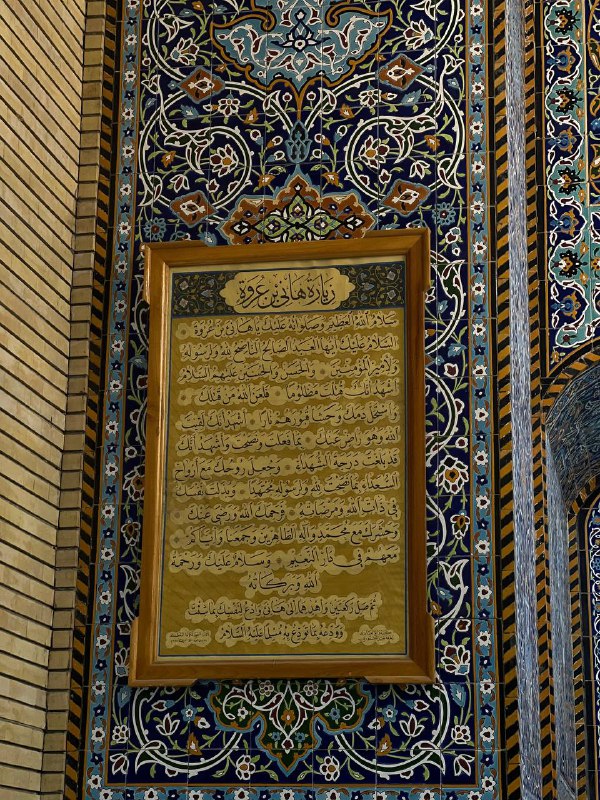 زيارة هاني بن عروة
سلام الله العظيم وصلواته عليك يا هاني بن عروة
السلام عليك ايها العبد الصالح الناصح لله ولرسوله
ولأمير المؤمنين والحسن والحسين عليهم السلام
اشهد انك قتلت مظلوما فلعن الله من قتلك
واستحل دمك وحشا قبورهم نارا اشهد انك لقيت
الله وهو راض عنك بما فعلت ونصحت واشهد انك
قد بلغت درجة الشهداء وجعل روحك مع ارواح
السعداء بما نصحت لله ولرسوله مجتهدا وبذلت نفسك
في ذات الله ومرضاته فرحمك الله ورضي عنك
وحشرك مع محمد وآله الطاهرين وجمعنا واياكم
معهم في دار النعيم وسلام عليك ورحمة
الله وبركاته
ثم صل ركعتين واهدهما الى هاني وادع لنفسك بما شئت
وودعه بما تودع به مسلما عليه السلام